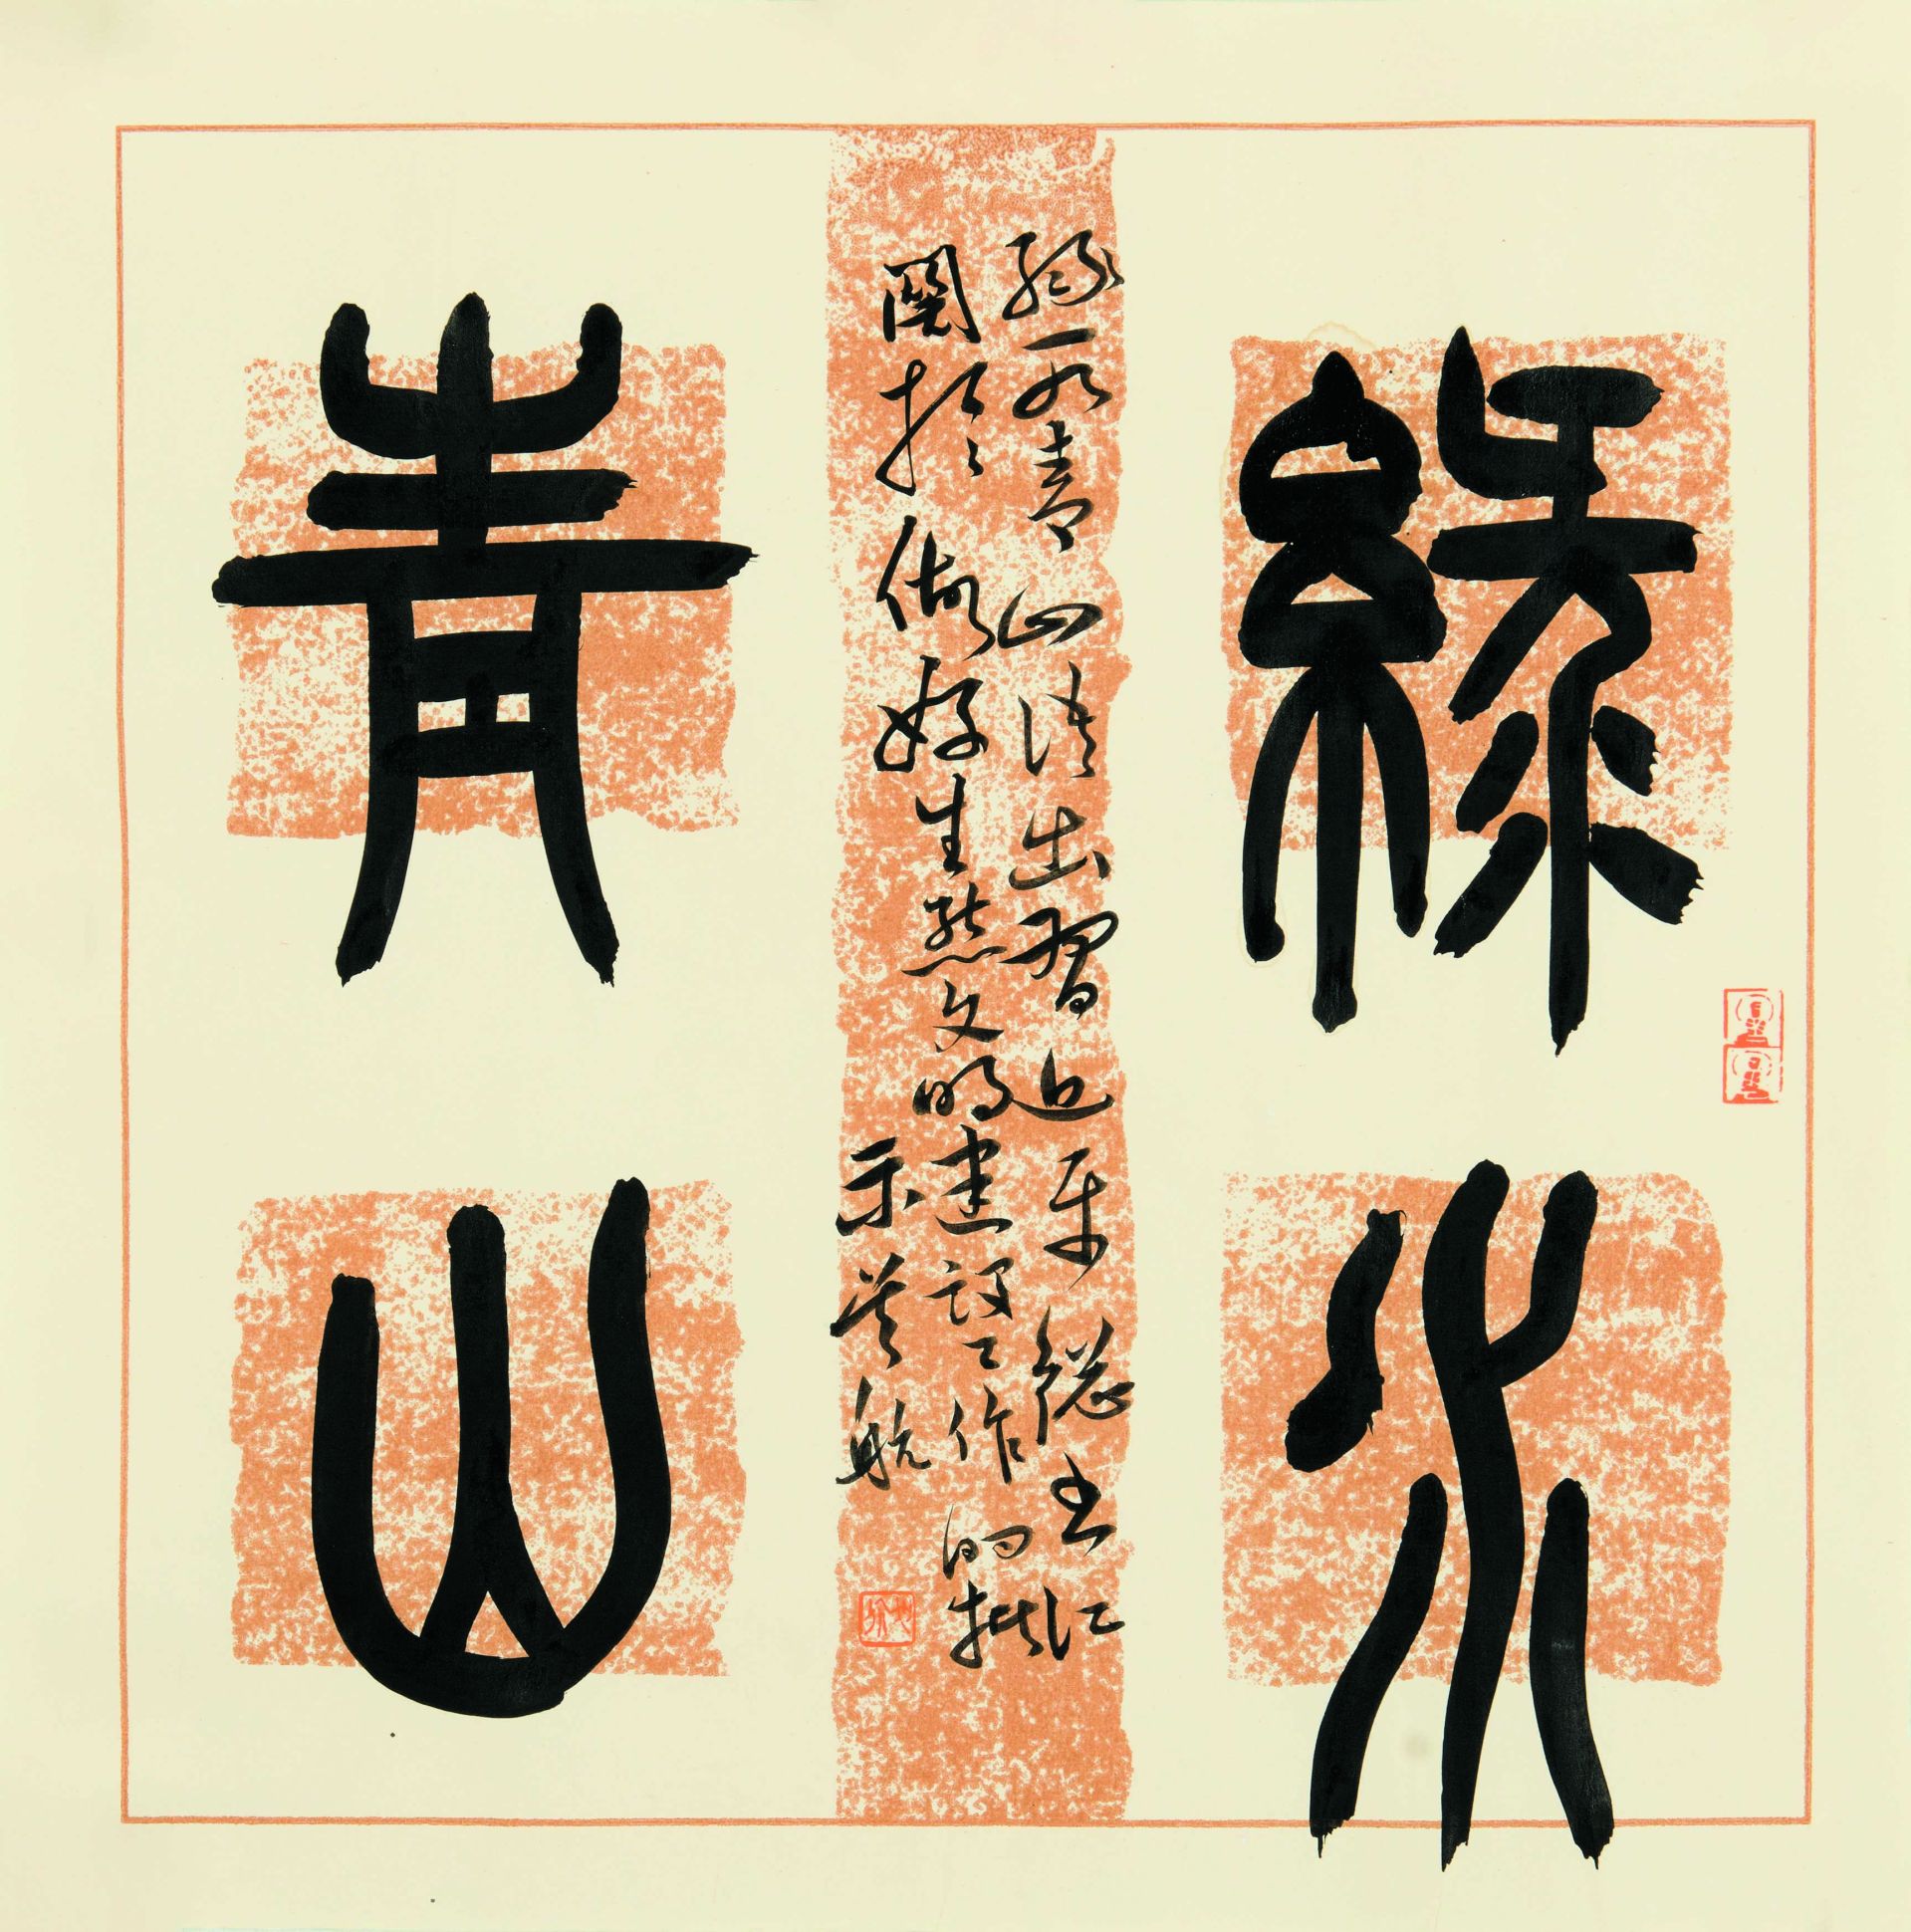 綠水
青山
綠水青山語出習近平總書記
關於做好生態文明建設工作的批
示 英航